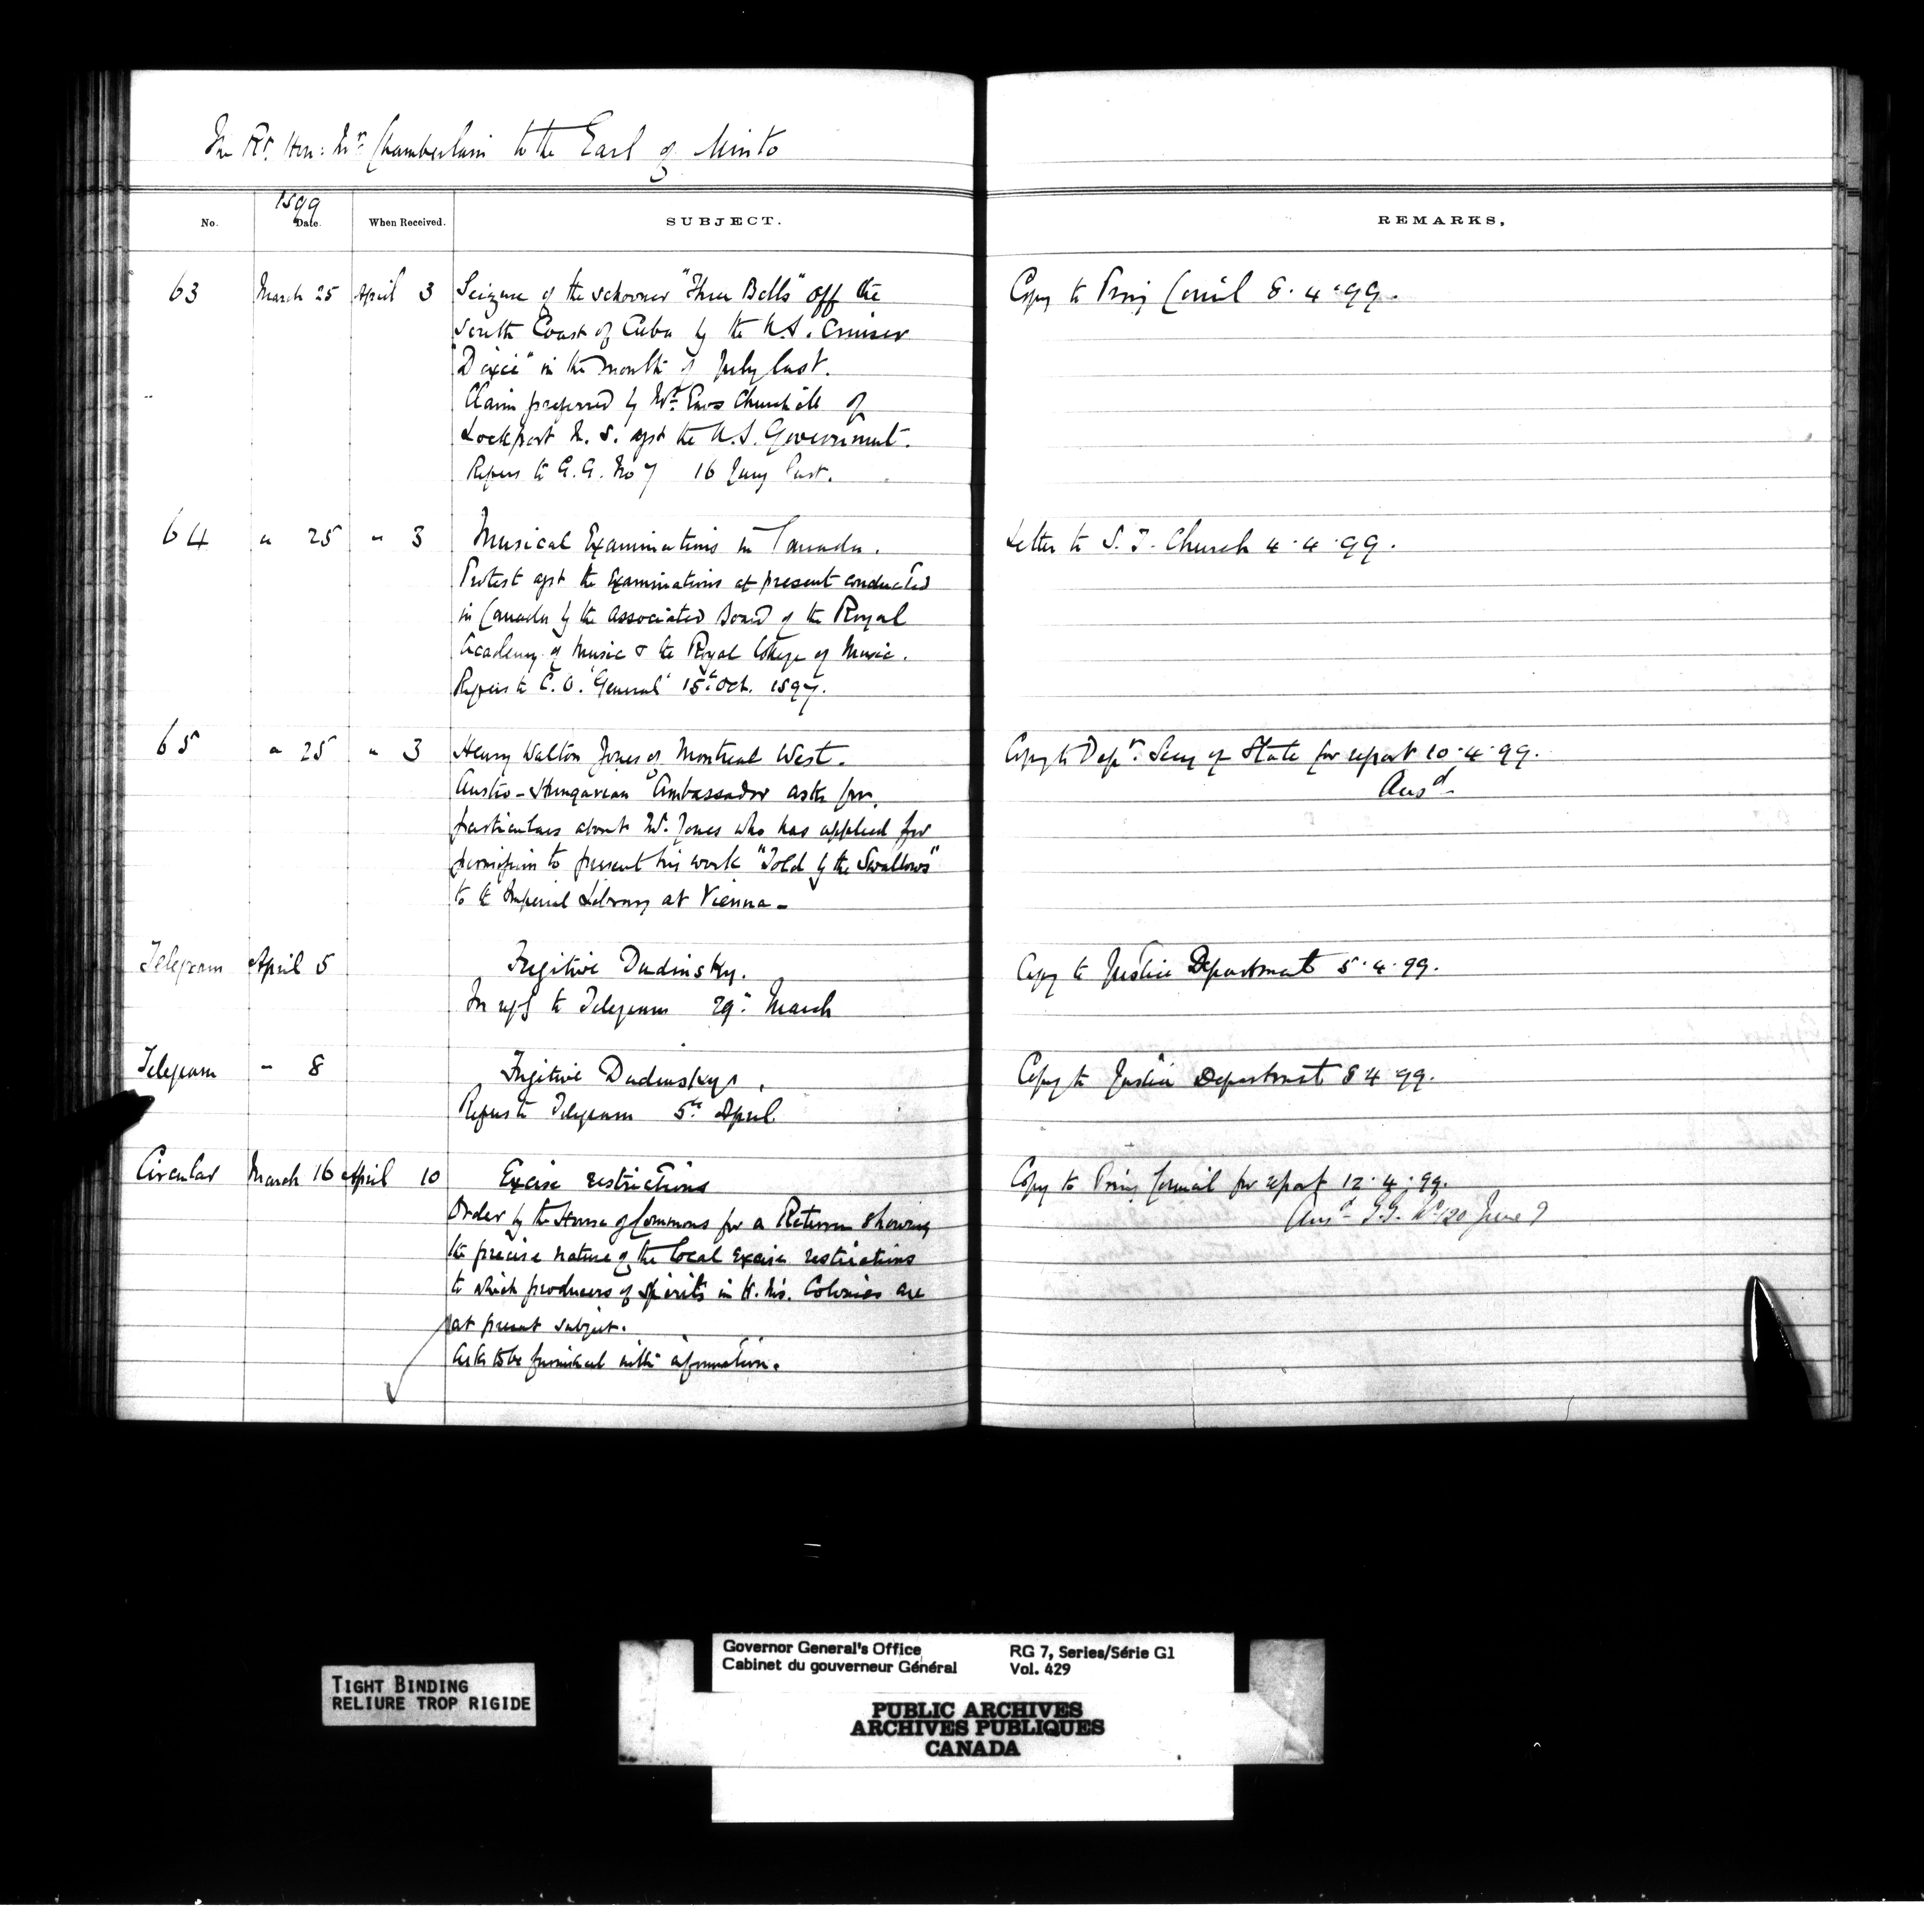 The Rt. Hon: Mr Chamberlain to the Earl of Minto
1899
No. Date. When Received. SUBJECT. REMARKS.
63 March 25 April 3 Seizure of the schooner "Three Bells" off the Copy to Privy Council 8.4.99.
South Coast of Cuba by the U.S. Cruiser
"Dixie" in the month of July last.
Claim preferred by Mr. Enos Churchill of
Lockport N.S. agst the U.S. Government.
Refers to G.G. No 7 16 Jany last.
64 " 25 " 3 Musical Examinations in Canada. Letter to S. T. Church 4.4.99.
Protest agst the Examinations at present conducted
in Canada by the Associated Board of the Royal
Academy of Music & the Royal College of Music.
Refers to C.O. "General" 15th Oct. 1897.
65 " 25 " 3 Henry Walton Jones of Montreal West. Copy to Depy. Secy of State for report 10.4.99.
Austro-Hungarian Ambassador asks for Ansd.
particulars about Mr. Jones who has applied for
permission to present his work "Told by the Swallows"
to the Imperial Library at Vienna-
Telegram April 5 Fugitive Dudinsky. Copy to Justice Department 5.4.99.
In reply to Telegram 29th March
Telegram " 8 Fugitive Dudinsky. Copy to Justice Department 8.4.99.
Refers to Telegram 5th April
Circular March 16 April 10 Excise restrictions Copy to Privy Council for report 12.4.99.
Order by the House of Commons for a Return showing Ansd- G.G. No 120 June 9
the precise nature of the local Excise restrictions
to which producers of spirits in H.M's. Colonies are
at present subject.
Asks to be furnished with information.
TIGHT BINDING
RELIURE TROP RIGIDE
Governor General's Office RG 7, Series/Série G1
Cabinet du gouverneur Général Vol. 429
PUBLIC ARCHIVES
ARCHIVES PUBLIQUES
CANADA